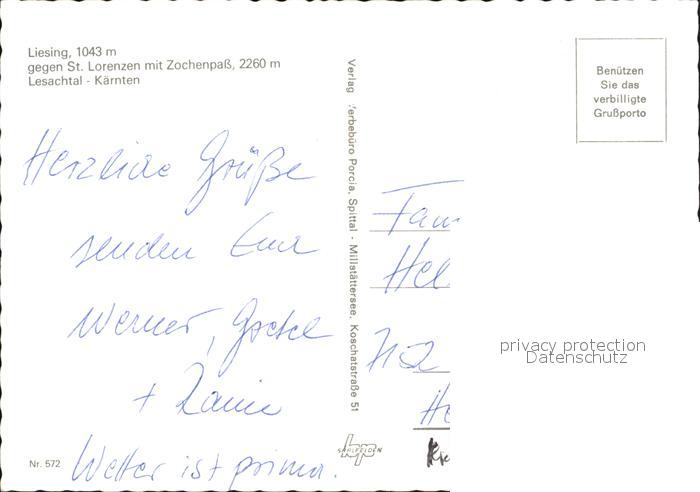 Liesing, 1043 m
gegen St. Lorenzen mit Zochenpaß, 2260 m
Lesachtal - Kärnten
Herzliche Grüße
senden Eure
Werner, Gretel
+
Wetter ist prima.
Nr. 572
Verlag Porcia, Spittal - Millstättersee, Koschatstraße 51
Benützen
Sie das
verbilligte
Grußporto
Fam
Hel
privacy protection
Datenschutz